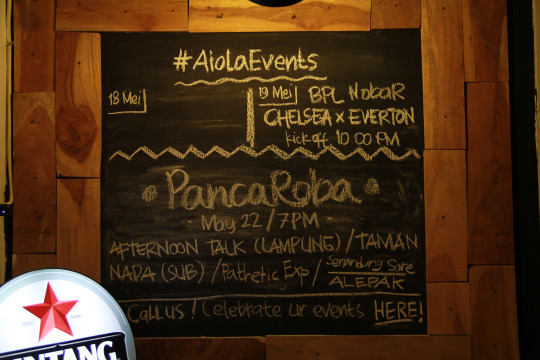 #AiolaEvents
18 Mei
19 Mei BPL NobaR
CHELSEA x EVERTON
kick off 10:00 PM
PancaRoba
- May 22 / 7PM -
AFTERNOON TALK (LAMPUNG) / TAMAN
NADA (SUB) / Pathetic Exp / Senandung Sore
ALEPAK
Call us! Celebrate ur events HERE!
NTANG